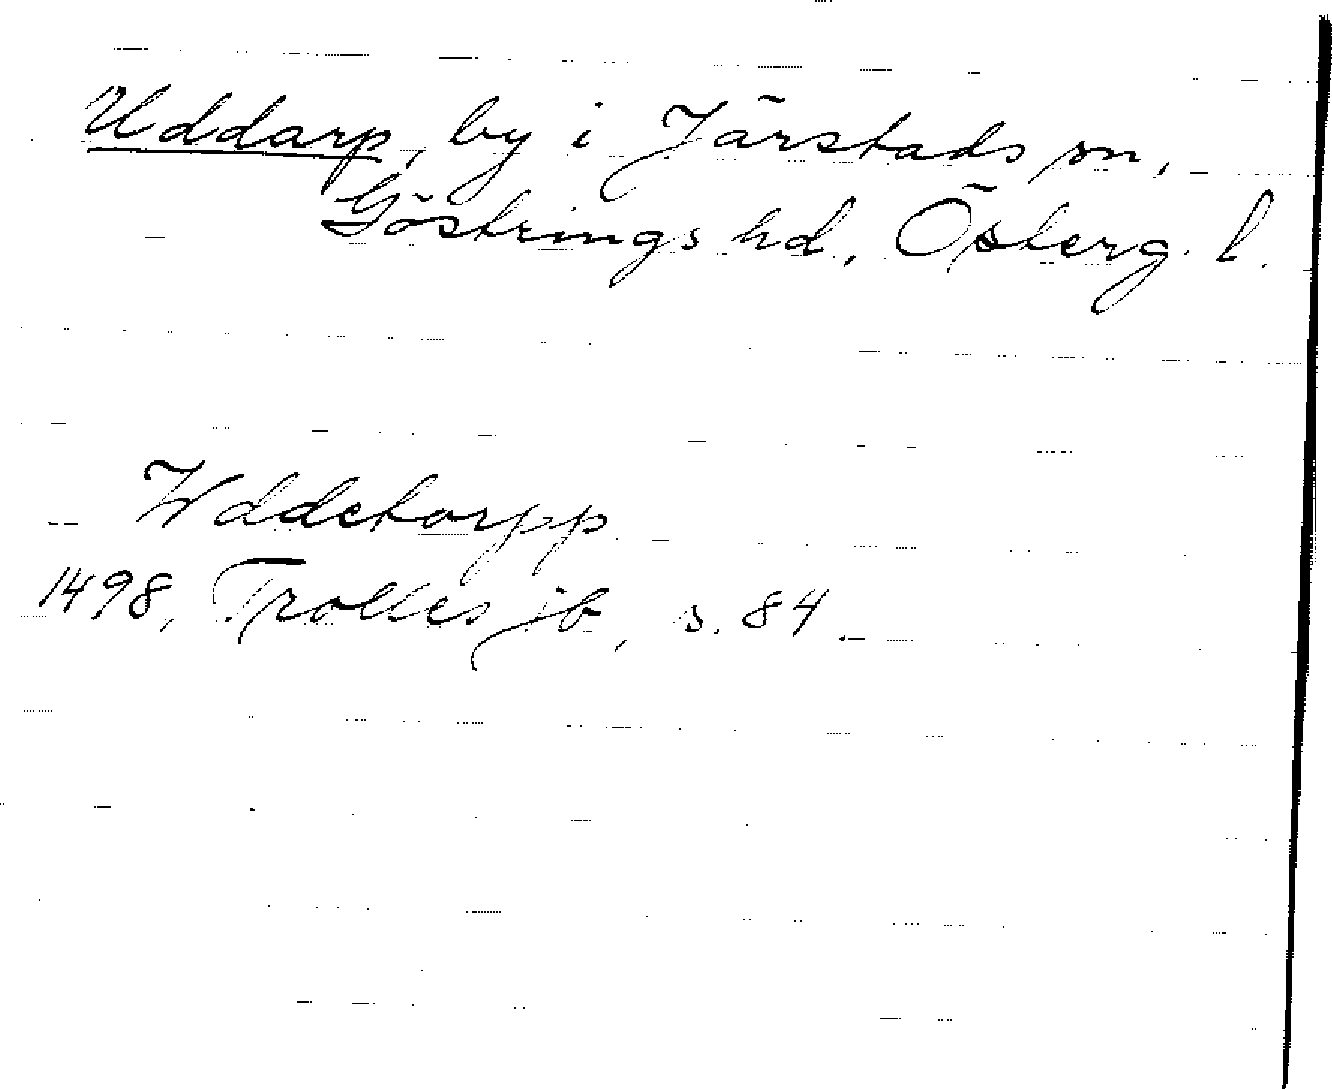 Uddarp, by i Järstads sn,
Göstrings hd, Österg. l.
Wddetorpp
1498, Trolles jb, s. 84.